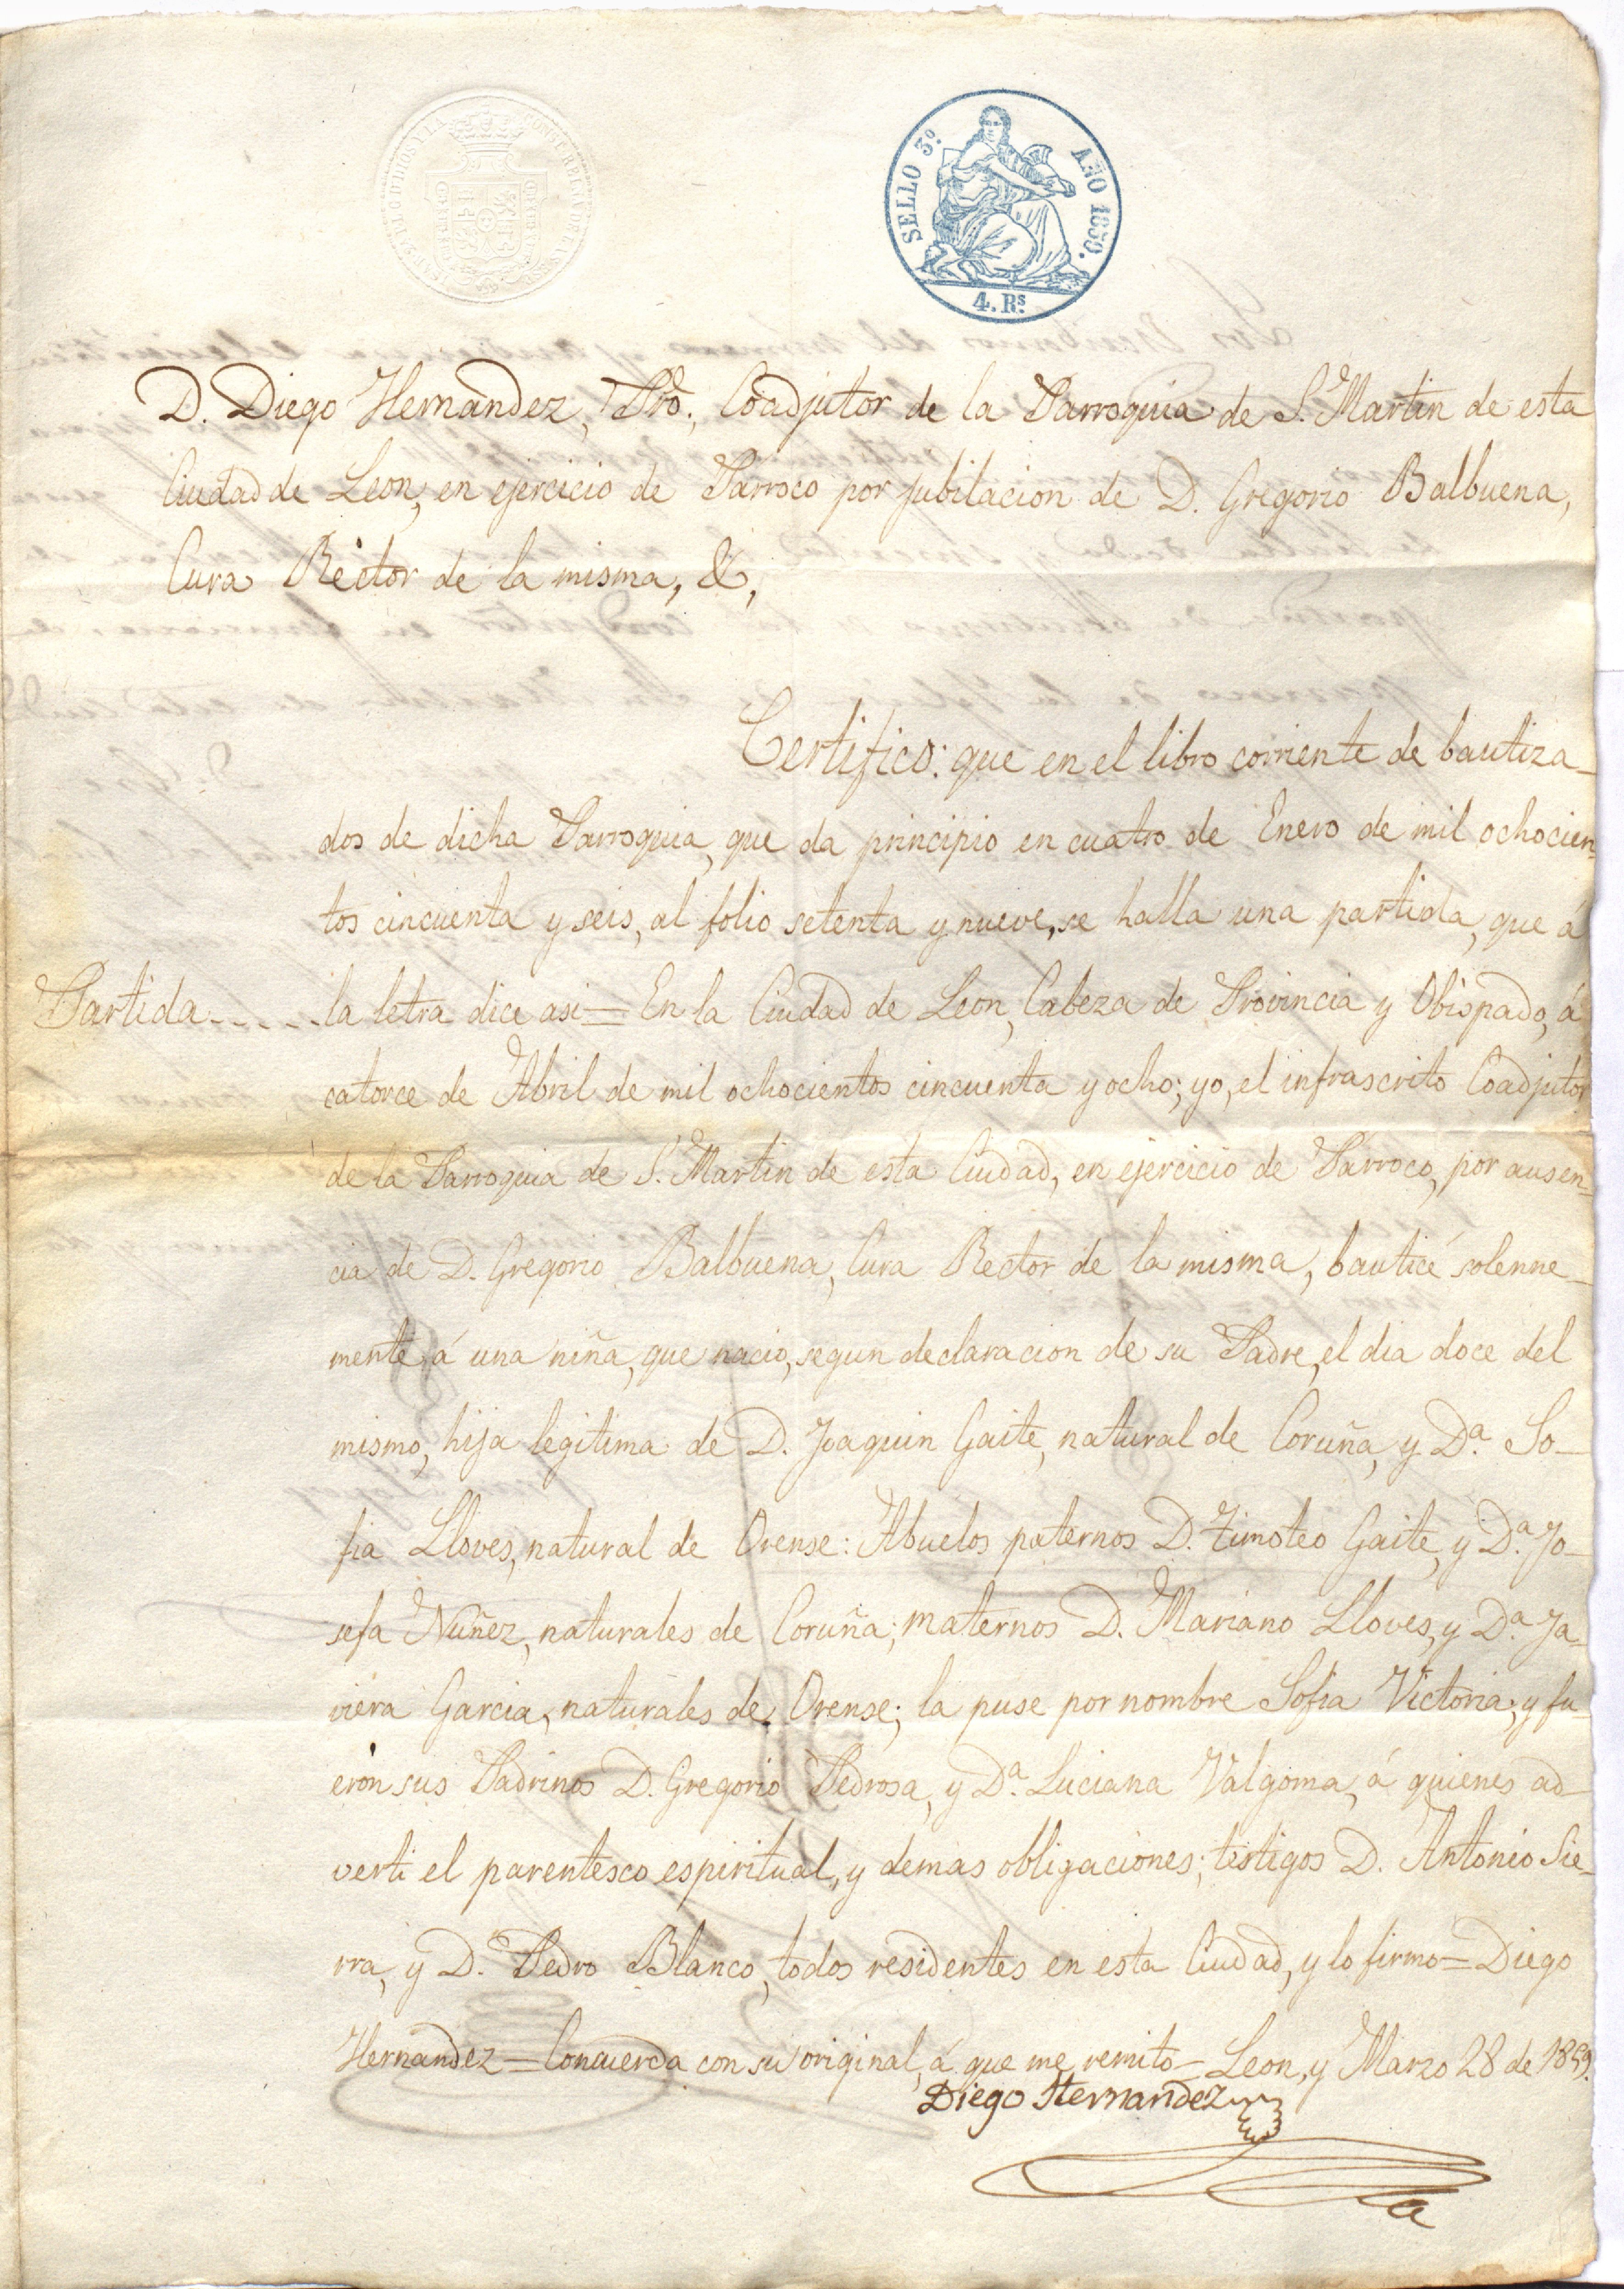 SELLO 3º. AÑO 1859.
4. Rs.
D. Diego Hernandez, Pro., Coadjutor de la Parroquia de S. Martin de esta
Ciudad de Leon, en ejercicio de Parroco por jubilacion de D. Gregorio Balbuena,
Cura Rector de la misma, &,
Certifico: que en el libro corriente de bautiza-
dos de dicha Parroquia, que da principio en cuatro de Enero de mil ochocien-
tos cincuenta y seis, al folio setenta y nueve, se halla una partida, que á
Partida.....la letra dice asi= En la Ciudad de Leon, Cabeza de Provincia y Obispado, á
catorce de Abril de mil ochocientos cincuenta y ocho; yo, el infrascrito Coadjutor
de la Parroquia de S. Martin de esta Ciudad, en ejercicio de Parroco, por ausen-
cia de D. Gregorio Balbuena, Cura Rector de la misma, bauticé solenne-
mente á una niña, que nacio, segun declaracion de su Padre, el dia doce del
mismo, hija legitima de D. Joaquin Gaite, natural de Coruña, y Dª. So-
fia Lloves, natural de Orense: Abuelos paternos D. Timoteo Gaite, y Dª. Jo-
sefa Nuñez, naturales de Coruña; maternos D. Mariano Lloves, y Dª. Ja-
viera Garcia, naturales de Orense; la puse por nombre Sofia Victoria; y fu-
eron sus Padrinos D. Gregorio Pedrosa, y Dª. Luciana Valgoma, á quienes ad-
verti el parentesco espiritual, y demas obligaciones; testigos D. Antonio Sie-
rra, y D. Pedro Blanco, todos residentes en esta Ciudad, y lo firmo= Diego
Hernandez= Concuerda con su original, á que me remito= Leon, y Marzo 28 de 1859.
Diego Hernandez